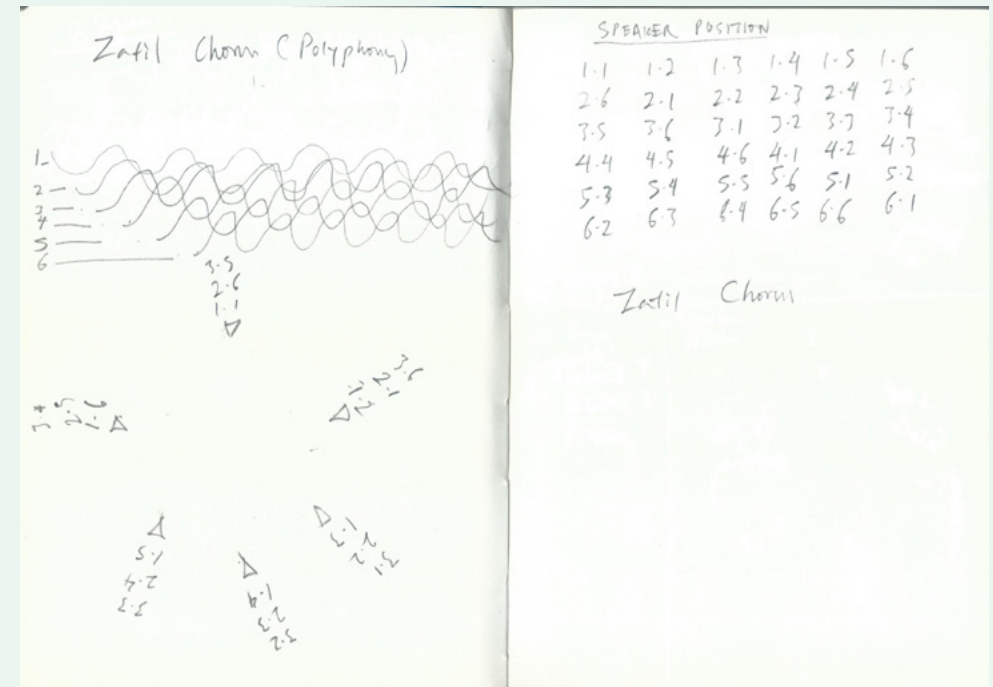 Zatil Chorus (Polyphony)
1
2
3
4
5
6
3.5
2.6
1.1
3.6
2.1
1.2
1.3
2.2
3.1
1.4
2.3
3.2
1.5
2.4
3.3
SPEAKER POSITION
1.1 1.2 1.3 1.4 1.5 1.6
2.6 2.1 2.2 2.3 2.4 2.5
3.5 3.6 3.1 3.2 3.3 3.4
4.4 4.5 4.6 4.1 4.2 4.3
5.3 5.4 5.5 5.6 5.1 5.2
6.2 6.3 6.4 6.5 6.6 6.1
Zatil Chorus